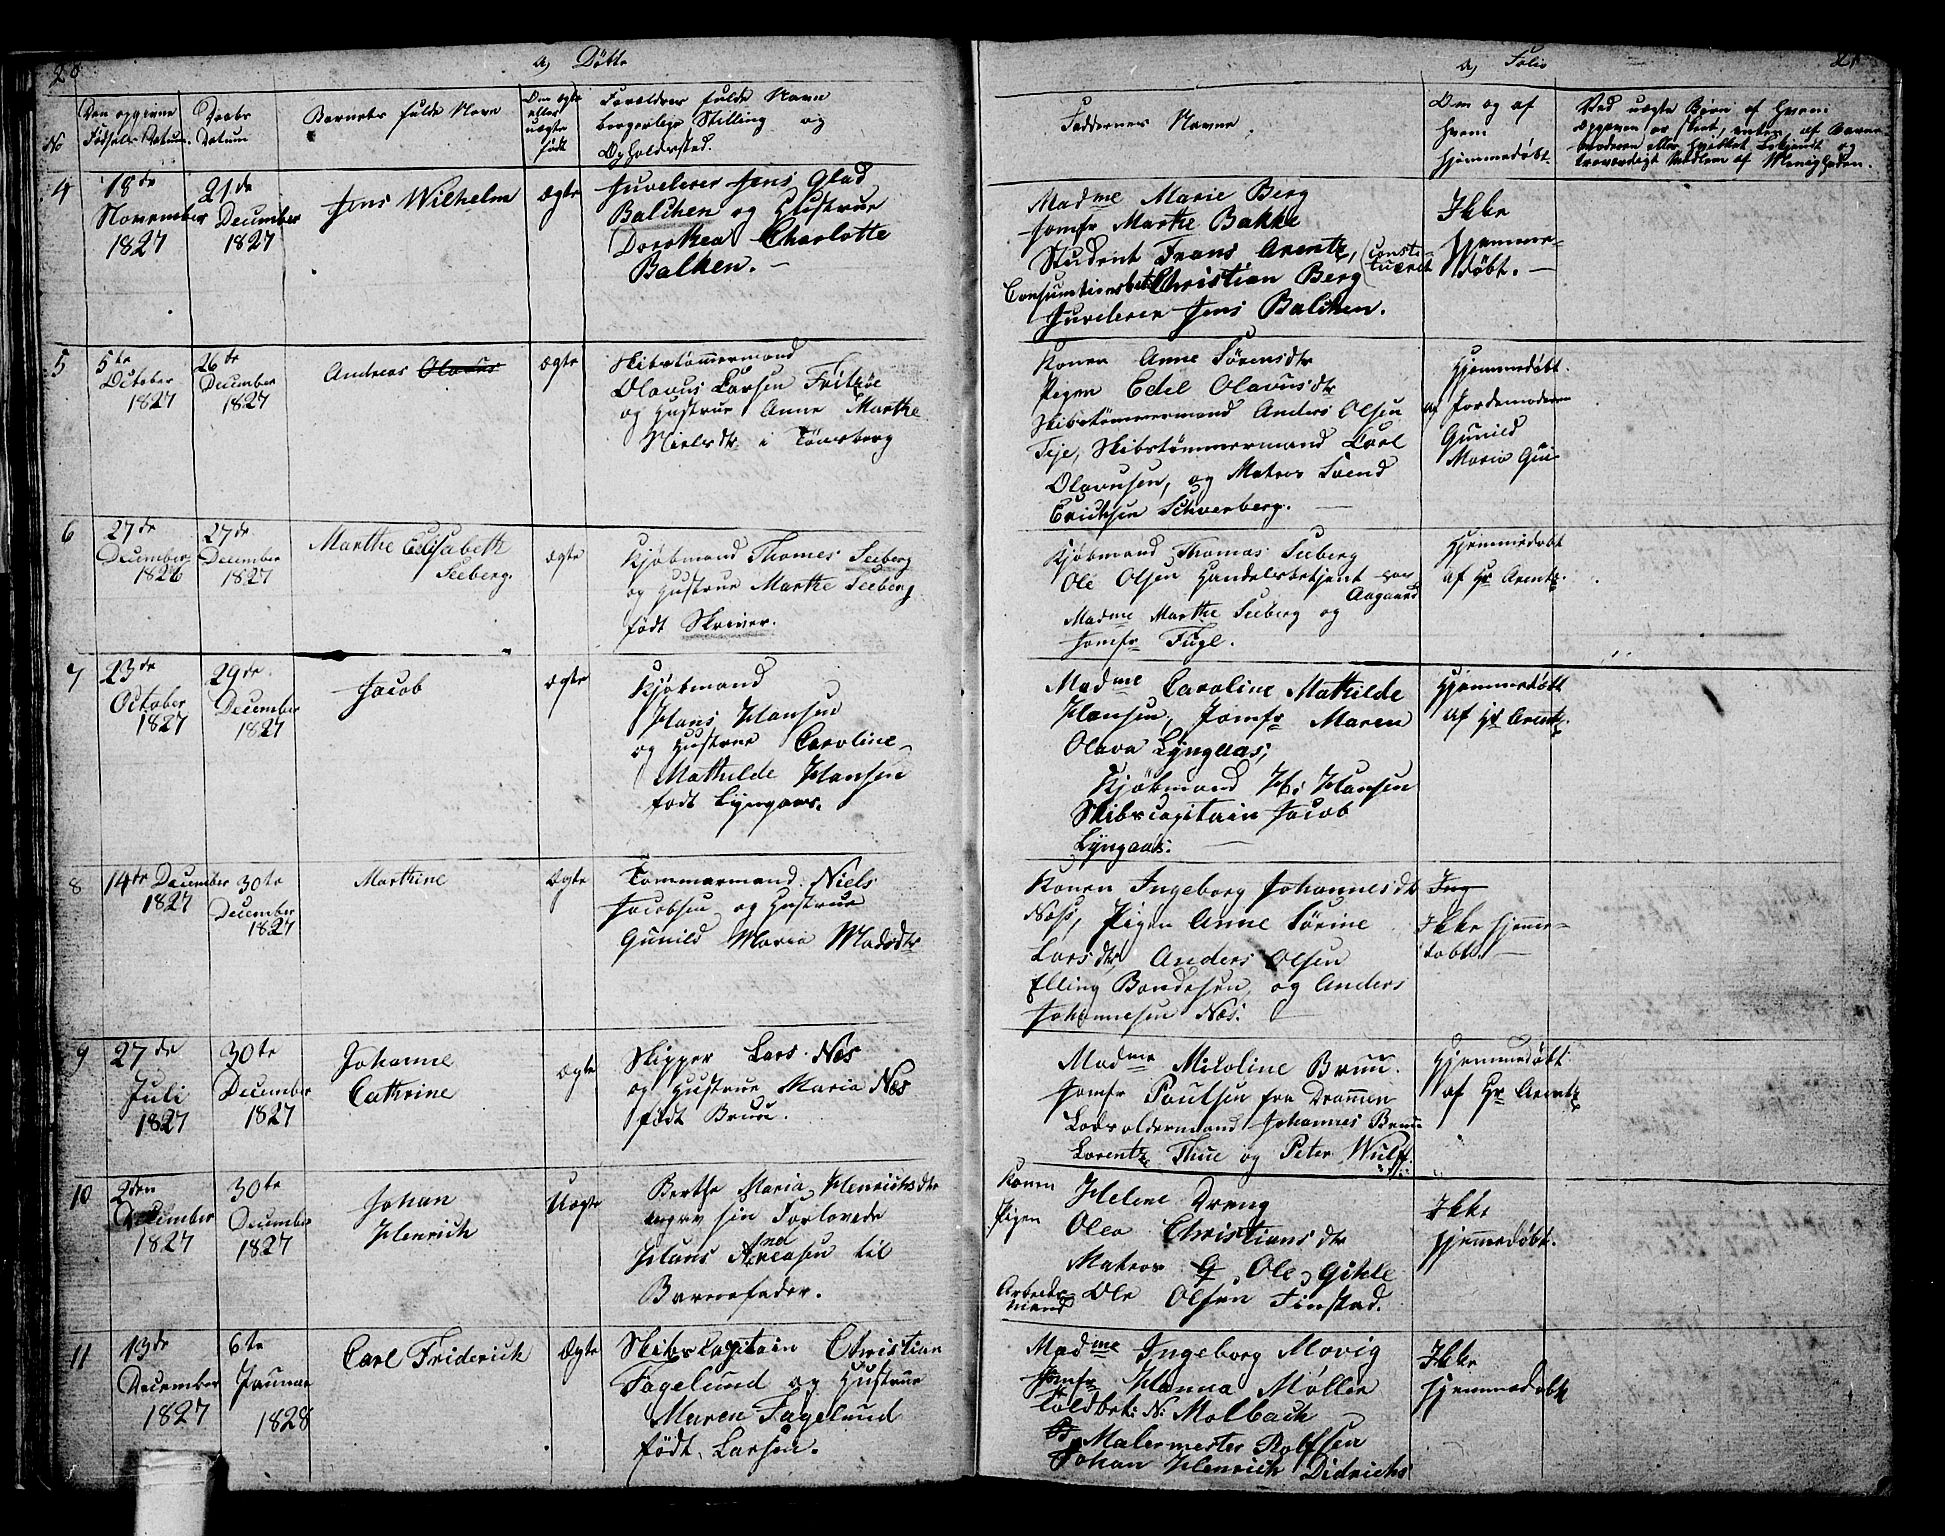 28
a, Døbte
No
Den opgivne Fødsels Datum.
Daabs Datum
Barnets fulde Navn
Om ægte eller uægte født
Forældres fulde Navn
borgerlige Stilling og
Opholdssted.
4
18de November 1827
21de December 1827
Jens Wilhelm
ægte
Juvelerer Jens Glad
Balchen og Hustrue
Dorothea Charlotte
Balken. –
5
5te October 1827
26de December 1827
Andreas Olavus
ægte
Skibstømmermand
Olavus Larsen Fritzøe
og Hustrue Anne Marthe
Nielsdtr i Tønsberg
6
27de December 1826
27de December 1827
Marthe Elisabeth
Seeberg.
ægte
Kjøbmand Thomes Seeberg
og Hustrue Marthe Seeberg
født Skriver.
7
23de October 1827
29de December 1827
Jacob
ægte
Kjøbmand
Hans Hansen
og Hustrue Caroline
Mathilde Hansen
født Lyngaas.
8
14de December 1827
30te December 1827
Marthine
Ægte
Tømmermand Niels
Jacobsen og Hustrue
Gunild Maria Madsdtr
9
27de Juli 1827
30te December 1827
Johanne
Cathrine
Ægte
Skipper Lars Næs
og Hustrue Maria Næs
født Bruun.
10
2den December 1827
30te December 1827
Johan
Henrich
Uægte
Berthe Maria Henrichsdtr
angav sin Forlovede
Hans Andreasen til
Barnefader.
11
13de December 1827
6te Januar 1828
Carl Friderich
Ægte
Skibscapitain Christian
Fagelund og Hustrue
Maren Fagelund
født Larsen.
a, Folio
Faddernes Navne
Om og af
hvem
hjemmedøbt.
Ved uægte Børn af hvem
Opgaven er skeet, enten af Barne
moderen eller hvilket bekjendt og
troværdigt Medlem af Menigheden.
Madme Marie Berg
Jomfr Marthe Bakke
Student Frans Arentz,
Consumtionsbetj Christian Berg (constitueret
Juveleren Jens Balchen.
Ikke
hjemme-
døbt. –
Konen Anne Sørensdtr
Pigen Edel Olavusdtr
Skibstømmermand Anders Olsen
Teje, Skibstømmermand Carl
Olavusen, og Matros Svend
Erichsen Schverberg. –
Hjemmedøbt
af Jordemoderen
Gunild
Maria Gui-
Kjøbmand Thomas Seeberg
Ole Olsen Handelsbetjent hos
Aagaard
Madme Marthe Seeberg og
Jomfr Fugl.
Hjemmedøbt
af Hr Arentz.
Madme Caroline Mathilde
Hansen, Jomfr Maren
Olava Lyngaas,
Kjøbmand H. Hansen
Skibscapitain Jacob
Lyngaas. –
Hjemmedøbt
af Hr Arentz.
Konen Ingeborg Johannesdtr
Næss, Pigen Anne Sørine
Larsdtr, Anders Olsen
Elling Bondesen, og Anders
Johannesen Næs.
Ing
Ikke hjemme-
døbt. –
Madme Nicoline Bruun
Jomfr Poulsen fra Drammen
Lodsoldermand Johannes Bruun
Lorentz Thue og Peter Wulff
Hjemmedøbt
af Hr Arentz
Konen Helene Dreng
Pigen Olea Christiansdtr
Matros G Ole Gihle
Arbeids-
mand Ole Olsen Finstad.
Ikke
hjemmedøbt.
Madme Ingeborg Movig
Jomfr Hanna Møller
Toldbet: N: Molbach
Malermester Rolfsen
Johan Henrich Didrichs
Ikke
hjemmedøbt